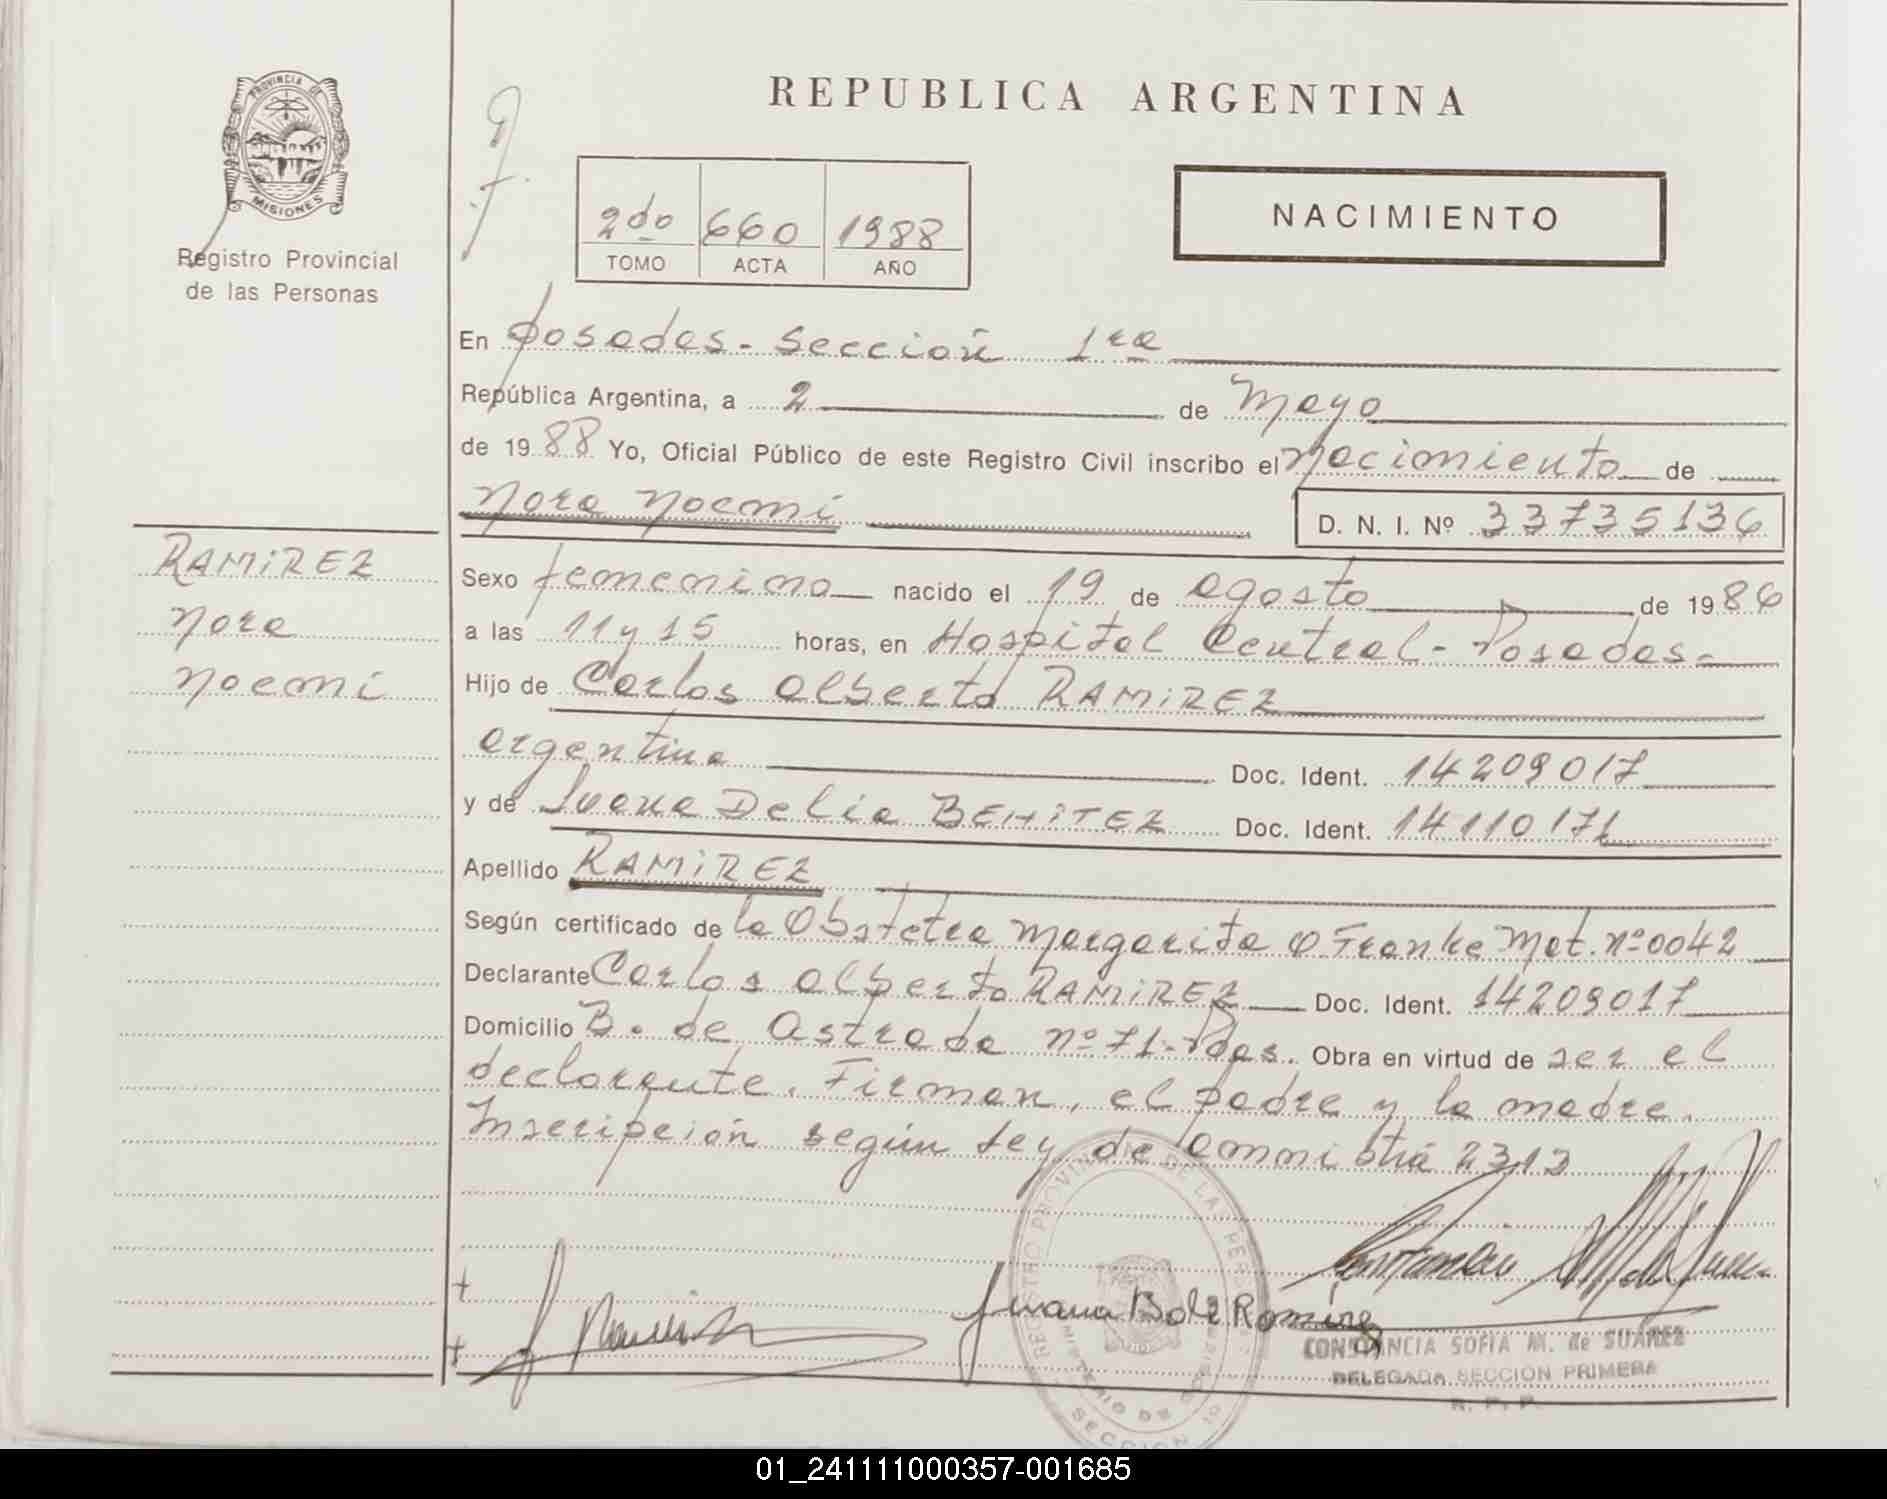 PROVINCIA DE
MISIONES
Registro Provincial
de las Personas
REPUBLICA ARGENTINA
2do 660 1988
TOMO ACTA AÑO
NACIMIENTO
En Posadas - Sección 1ra
República Argentina, a 2 de Mayo
de 1988 Yo, Oficial Público de este Registro Civil inscribo el Nacimiento de
Nora Noemi D. N. I. Nº 33735136
RAMIREZ
Nora
Noemi
Sexo femenino nacido el 19 de agosto de 1986
a las 11 y 15 horas, en Hospital Central - Posadas-
Hijo de Carlos Alberto RAMIREZ
argentina Doc. Ident. 14209017
y de Juana Delia BENITEZ Doc. Ident. 14110171
Apellido RAMIREZ
Según certificado de la Obstetra Margarita O Franke Mat. nº 0042
Declarante Carlos Alberto RAMIREZ Doc. Ident. 14209017
Domicilio B. de Astrada nº 71 - Pdas. Obra en virtud de ser el
declarante. Firman, el padre y la madre.
Inscripción según Ley de amnistia 2313
REGISTRO PROVINCIAL DE LAS PERSONAS
MINISTERIO DE GOBIERNO
SECCION
CONSTANCIA SOFIA M. de SUAREZ
DELEGADA SECCION PRIMERA
R. P. P.
01_241111000357-001685